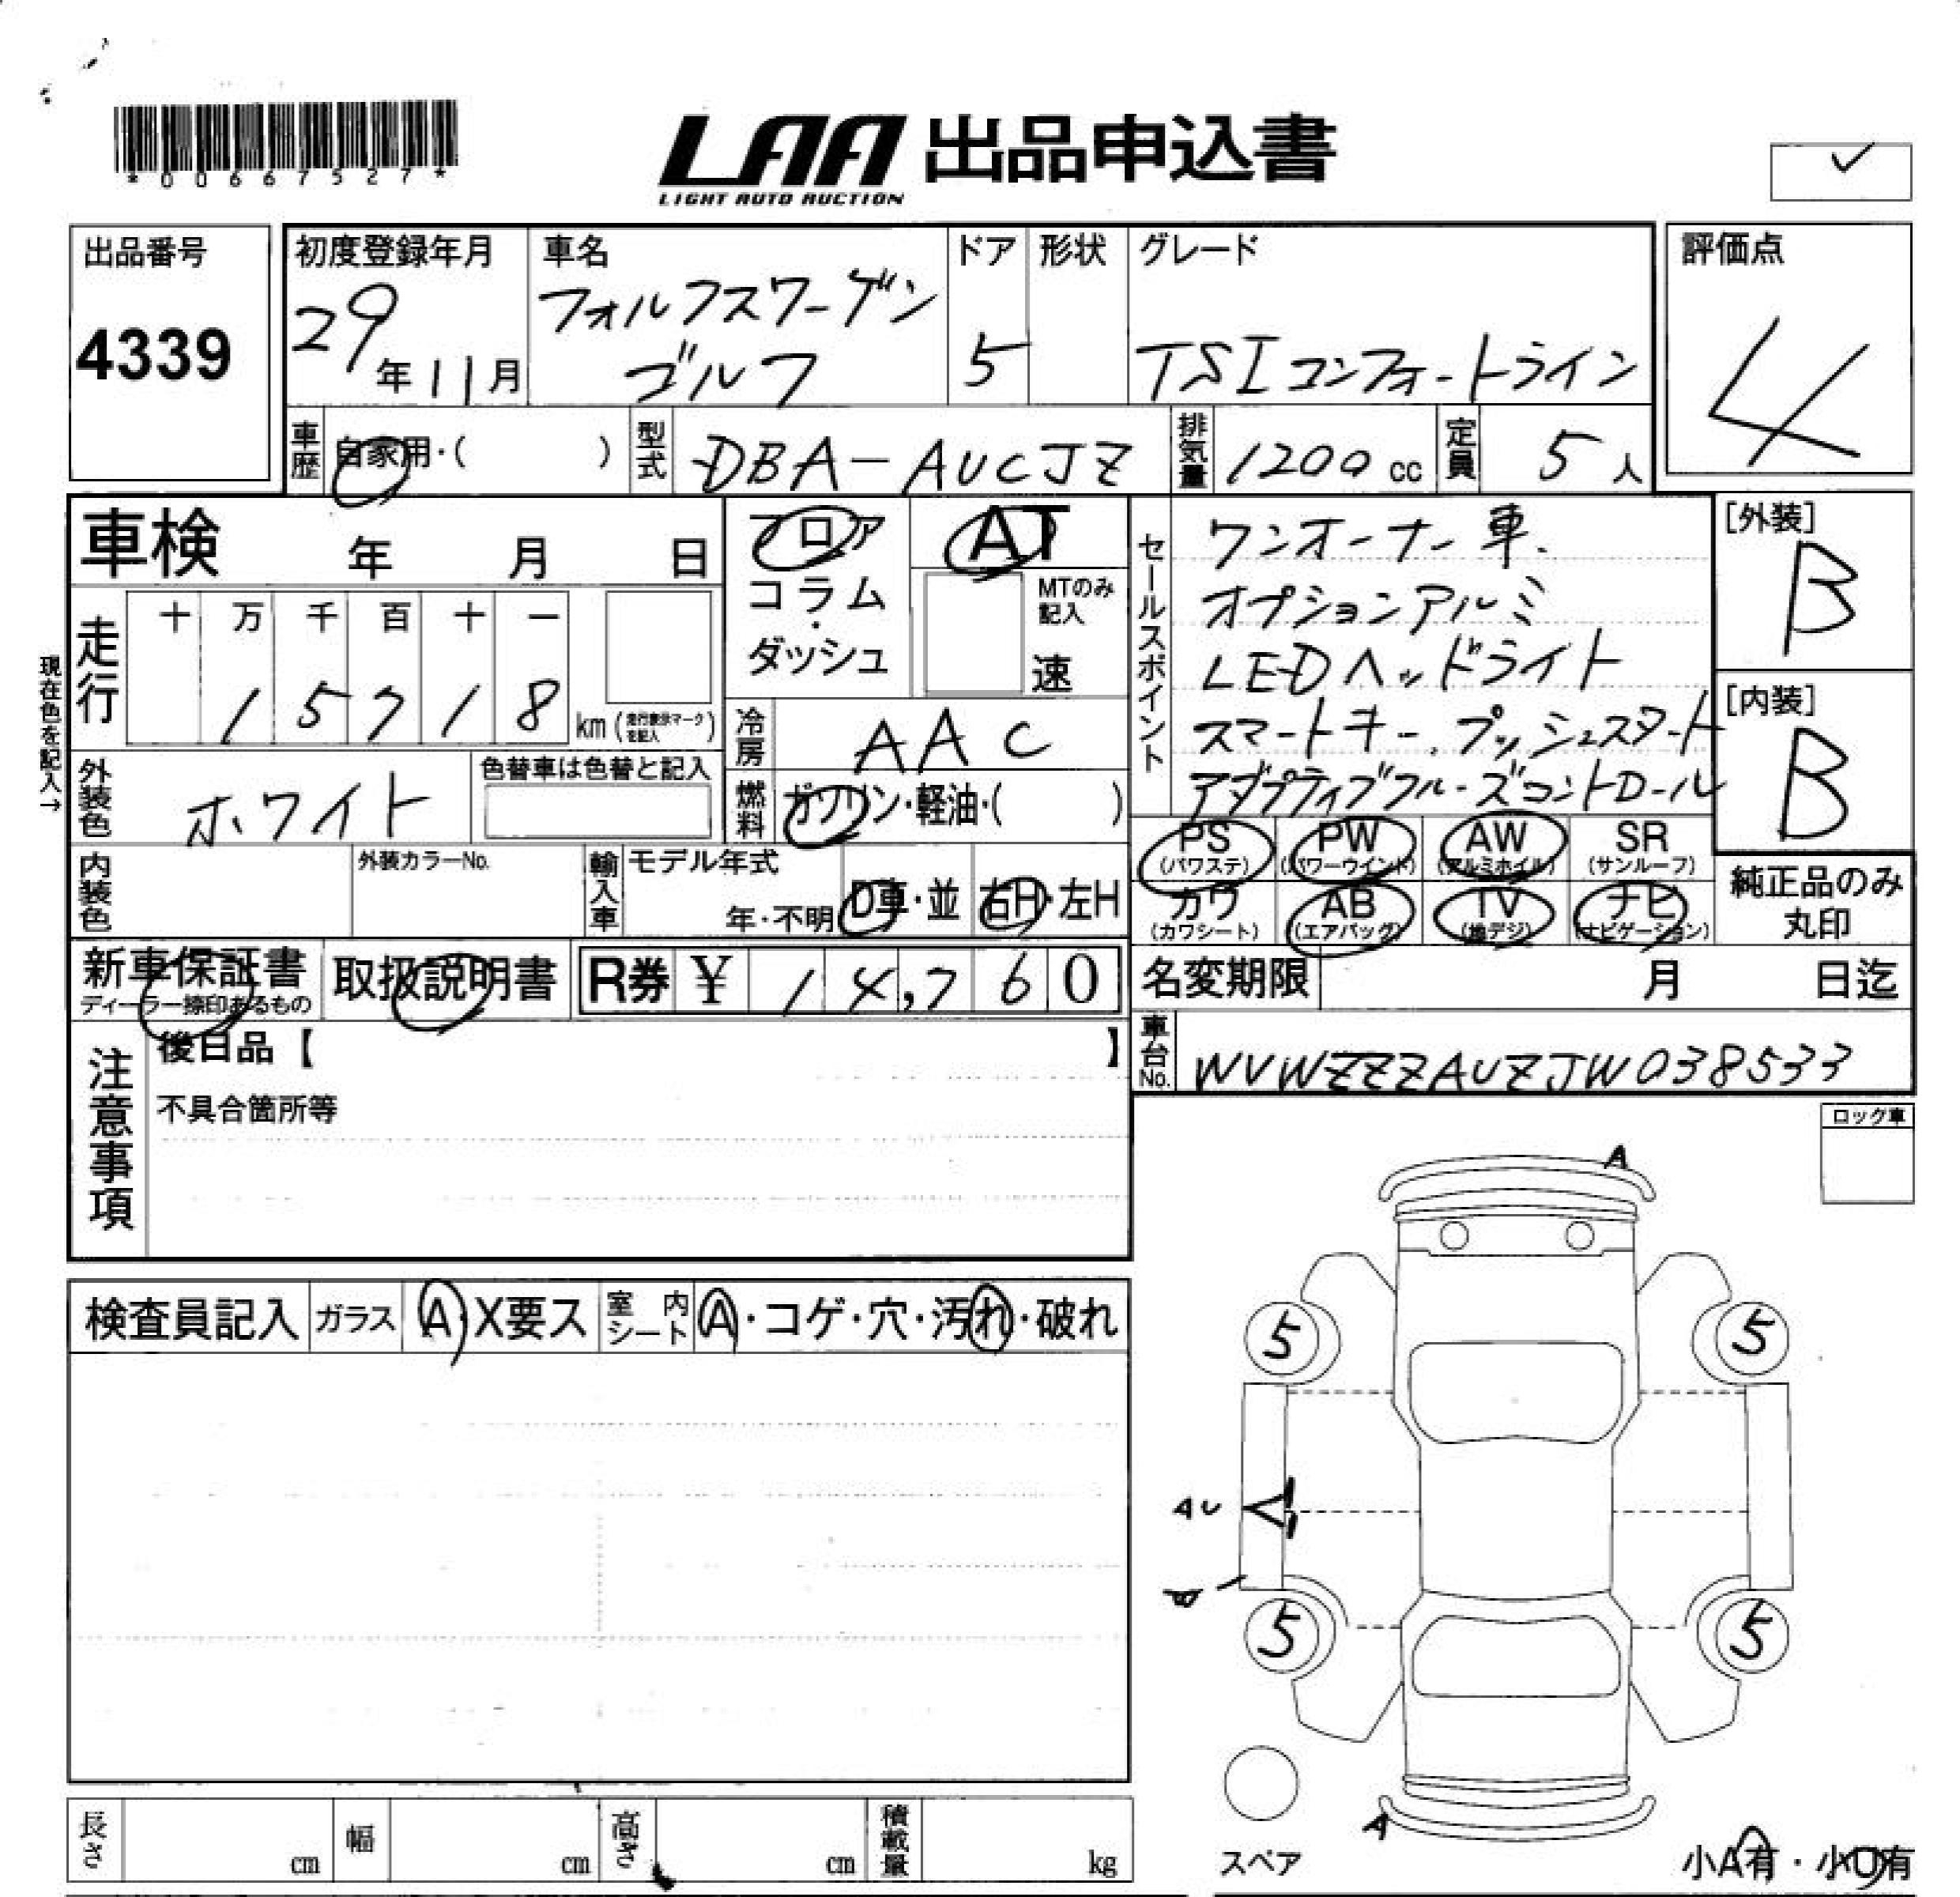 *00667527*
LAA 出品申込書
LIGHT AUTO AUCTION
✓
出品番号
4339
初度登録年月
29年11月
車名
フォルフスワーゲン
ゴルフ
ドア
5
形状
グレード
TSIコンフォートライン
評価点
4
車歴
自家用・( )
型式
DBA-AUCJZ
排気量
1200cc
定員
5人
車検 年 月 日
フロア
コラム
・
ダッシュ
AT
MTのみ
記入
速
セールスポイント
ワンオーナー車.
オプションアルミ
LEDヘッドライト
スマートキー.プッシュスタート
アダプティブクルーズコントロール
[外装]
B
[内装]
B
現在色を記入→
走行
十 万 千 百 十 一
1 5 7 1 8
km(走行表示マークを記入)
冷房
AAC
外装色
ホワイト
色替車は色替と記入
燃料
ガソリン・軽油・( )
PS
(パワステ)
PW
(パワーウインド)
AW
(アルミホイル)
SR
(サンルーフ)
カワ
(カワシート)
AB
(エアバッグ)
TV
(地デジ)
ナビ
(ナビゲーション)
純正品のみ
丸印
内装色
外装カラーNo.
輸入車
モデル年式
年・不明
D車・並
右H・左H
新車保証書
ディーラー捺印あるもの
取扱説明書
R券 ¥ 14,760
名変期限 月 日迄
車台No.
WVWZZZAUZJW038533
注意事項
後日品【 】
不具合箇所等
ロック車
検査員記入
ガラス
A・X要ス
室内シート
A・コゲ・穴・汚れ・破れ
A
5
5
AU
5
5
A
スペア
小A有・小U有
長さ
cm
幅
cm
高さ
cm
積載量
kg